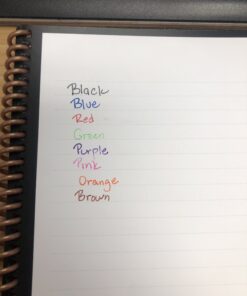 Black
Blue
Red
Green
Purple
Pink
Orange
Brown